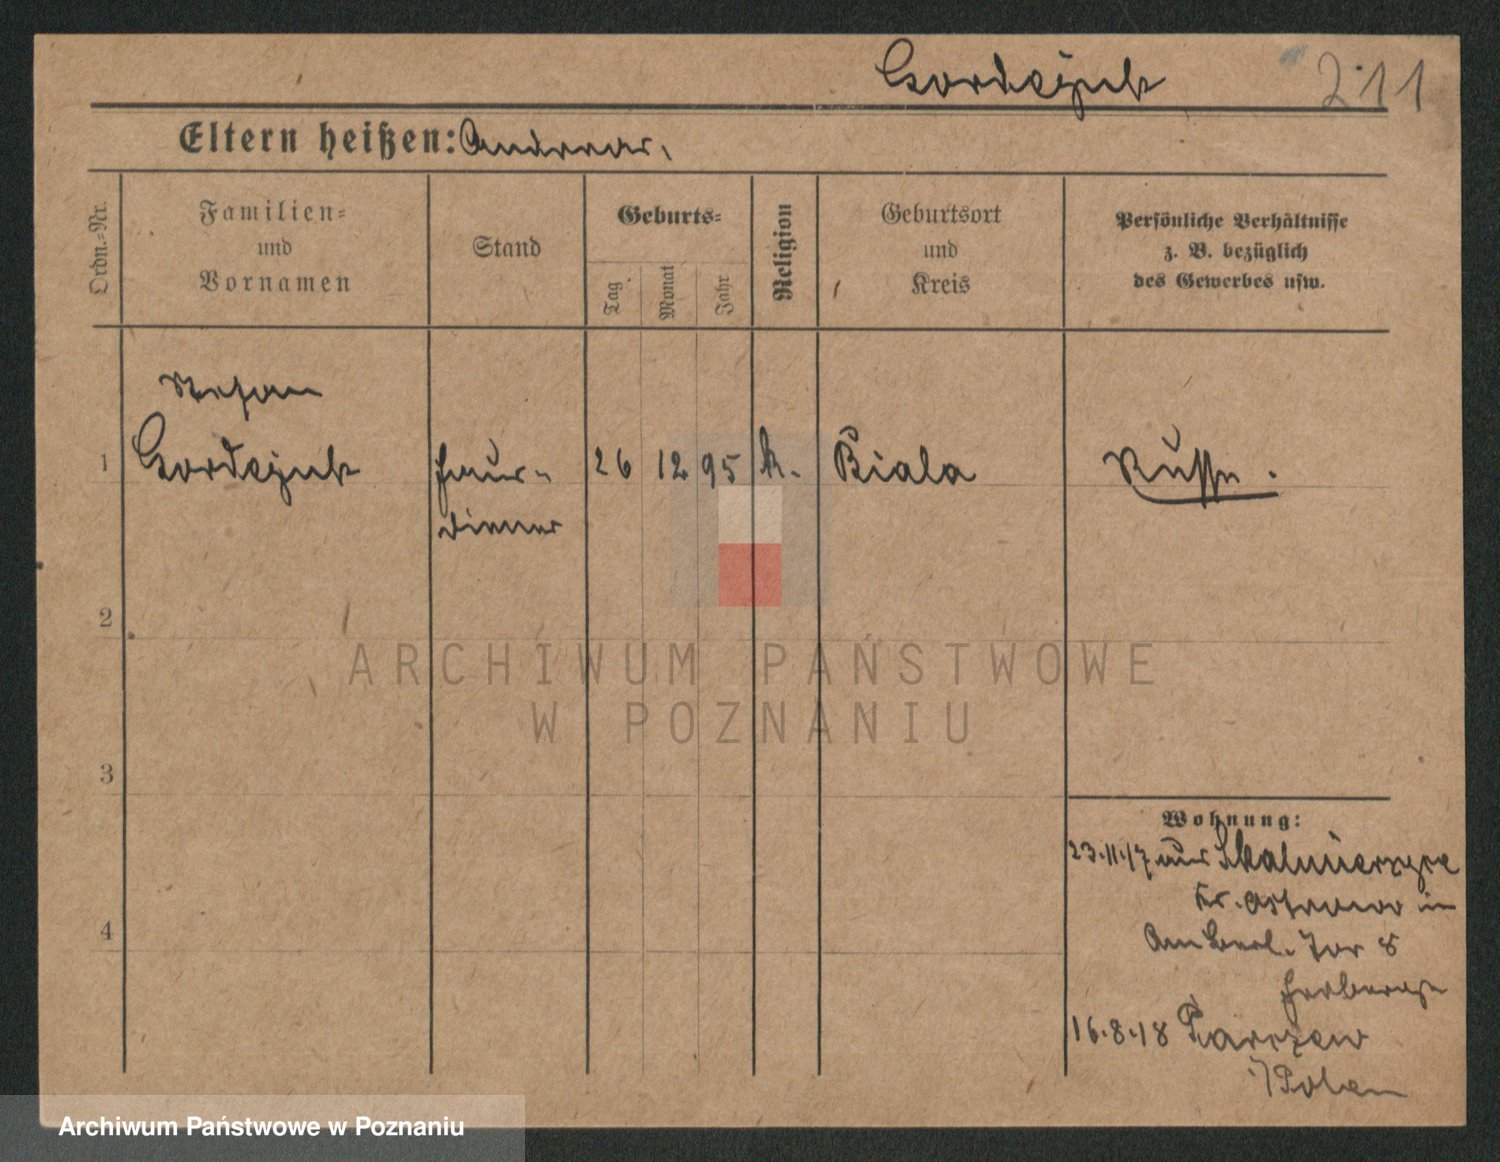 Gordejuk 211
Eltern heißen: Andreas.
Ordn.-Nr.
Familien-
und
Vornamen
Stand
Geburts-
Tag
Monat
Jahr
Religion
Geburtsort
und
Kreis
Persönliche Verhältnisse
z. B. bezüglich
des Gewerbes usw.
Stefan
1 Gordejuk Haus- 26 12 95 k. Biala Russe.
diener
2
3
4
Wohnung:
23.11.17 aus Skalmierzyce
Kr. Ostrowo in
Am Berl. Tor 8
Herberge
16.8.18 Parczew
/Polen
ARCHIWUM PAŃSTWOWE
W POZNANIU
Archiwum Państwowe w Poznaniu